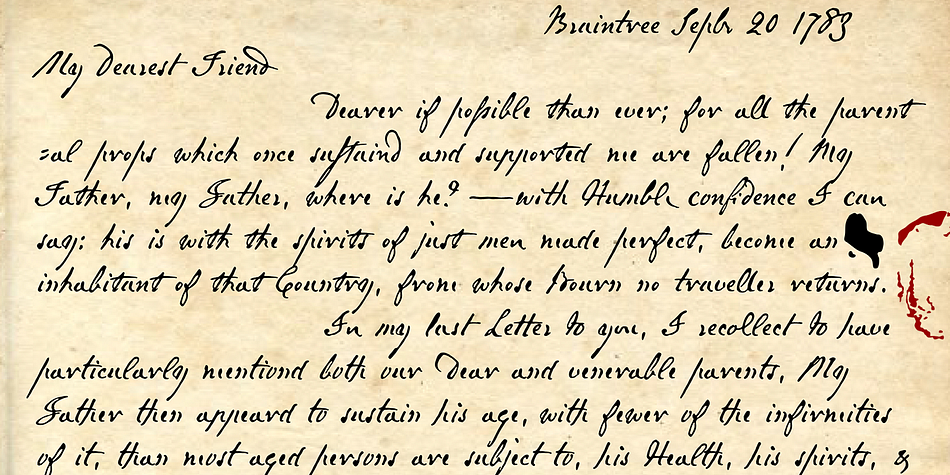 Braintree Sepbr 20 1783
My Dearest Friend
Dearer if poſsible than ever; for all the parent
=al props which once suſtaind and supported me are fallen! My
Father, my Father, where is he? —with Humble confidence I can
say: his is with the spirits of just men made perfect, become an
inhabitant of that Country, from whose Bourn no traveller returns.
In my last Letter to you, I recollect to have
particularly mentiond both our Dear and venerable parents, My
Father then appeard to sustain his age, with fewer of the infirmities
of it, than most aged persons are subject to, his Health, his spirits, &